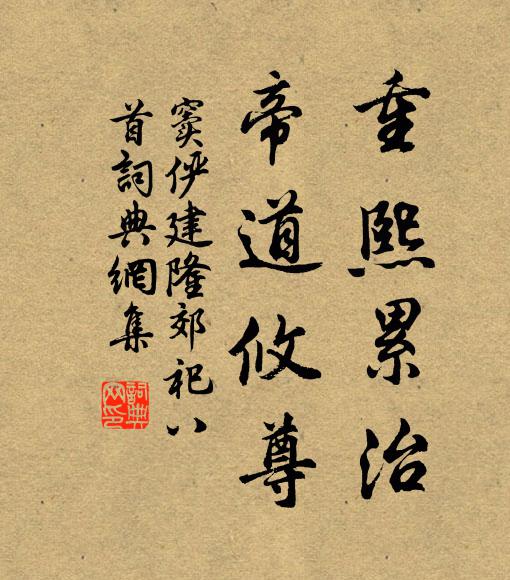 重熙累洽
帝道攸尊
窦俨建隆郊祀八
首詞典網集
詞典网印